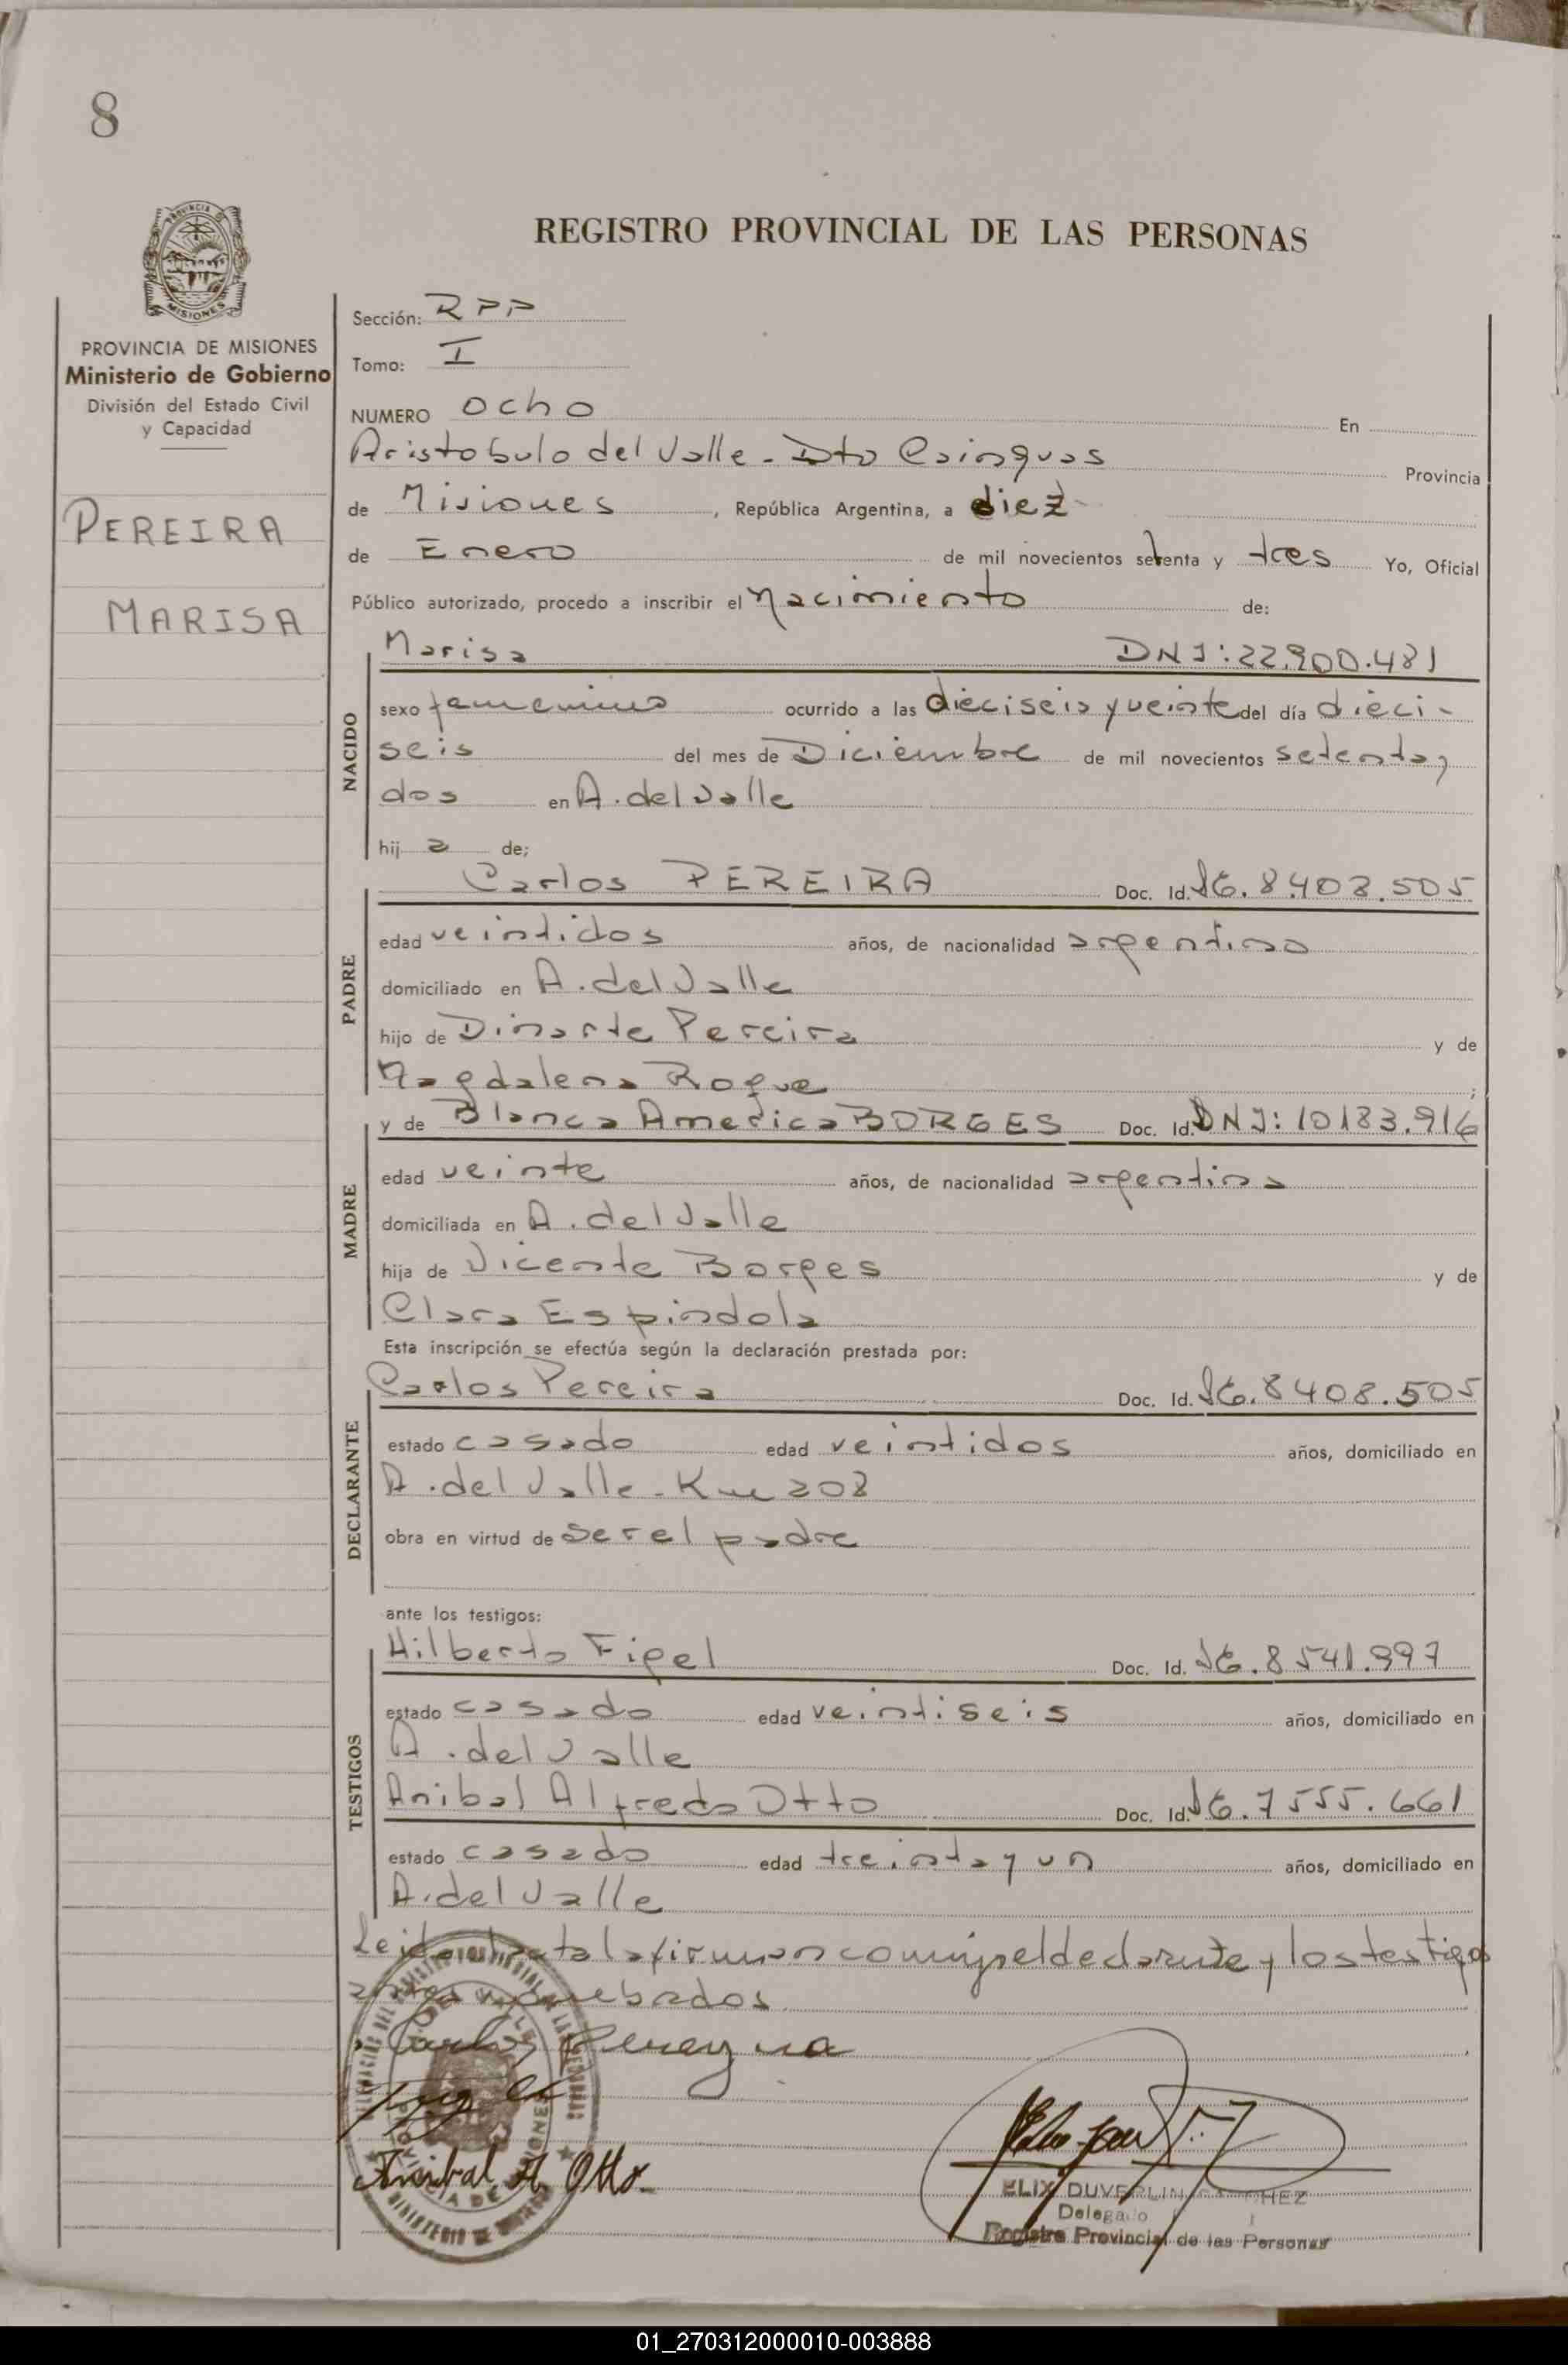 8
REGISTRO PROVINCIAL DE LAS PERSONAS
PROVINCIA DE MISIONES
Ministerio de Gobierno
División del Estado Civil
y Capacidad
PEREIRA
MARISA
Sección: RPP
Tomo: I
NUMERO ocho En
Aristobulo del Valle - Dto Cainguas Provincia
de Misiones, República Argentina, a diez
de Enero de mil novecientos setenta y tres Yo, Oficial
Público autorizado, procedo a inscribir el Nacimiento de:
NACIDO
Marisa DNI: 22.900.481
sexo femenino ocurrido a las dieciseis y veinte del día dieci-
seis del mes de Diciembre de mil novecientos setenta y
dos en A. del Valle
hij a de;
PADRE
Carlos PEREIRA Doc. Id. 8.408.505
edad veintidos años, de nacionalidad argentino
domiciliado en A. del Valle
hijo de Dinarte Pereira y de
Magdalena Roque ;
MADRE
y de Blanca America BORGES Doc. Id. DNI: 10183.916
edad veinte años, de nacionalidad argentina
domiciliada en A. del Valle
hija de Vicente Borges y de
Clara Espindola
Esta inscripción se efectúa según la declaración prestada por:
DECLARANTE
Carlos Pereira Doc. Id. 8408.505
estado casado edad veintidos años, domiciliado en
A. del Valle - Km 208
obra en virtud de ser el padre
ante los testigos:
TESTIGOS
Hilberto Fipel Doc. Id. 8541.997
estado casado edad veintiseis años, domiciliado en
A. del Valle
Anibal Alfredo Otto Doc. Id. 7555.661
estado casado edad treinta y un años, domiciliado en
A. del Valle
Leida el acta la firman conmigo el declarante y los testigos
Carlos Pereyra
Anibal A Otto.
Delegado
Registro Provincial de las Personas
01_270312000010-003888